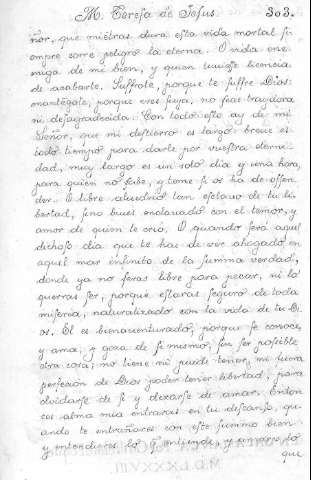 M. Teresa de Jesus 303.
ñor, que miẽtras dura esta vida mortal si-
empre corre peligro la eterna. O vida ene-
miga de mi bien, y quien tuuiesse licencia
de acabarte. Suffrote, porque te suffre Dios:
mantẽgote, porque eres suya, no seas traydora
ni desagradecida. Con todo esto ay de mi
Señor, que mi destierro es largo: breue es
todo tiempo para darle por vuestra eterni-
dad, muy largo es un solo dia y una hora,
para quien no sabe, y teme si os ha de offen-
der. O libre aluedrio tan esclauo de tu li-
bertad, sino biues enclauado con el temor, y
amor de quien te crio. O quando será aquel
dichoso dia que te has de ver ahogado, en
aquel mar infinito de la summa verdad,
donde ya no seras libre para pecar, ni lo
querras ser, porque estaras seguro de toda
miseria, naturalizado con la vida de tu Di-
os. El es bienauenturado, porque se conoce,
y ama, y goza de si mesmo, sin ser possible
otra cosa; no tiene ni puede tener, ni fuera
perfecion de Dios poder tener libertad, para
oluidarse de si y dexarse de amar. Enton-
ces alma mia entraras en tu descanso, qu-
ando te entrañares con este summo bien
y entendieres lo q̃ entiende, y amares lo
que